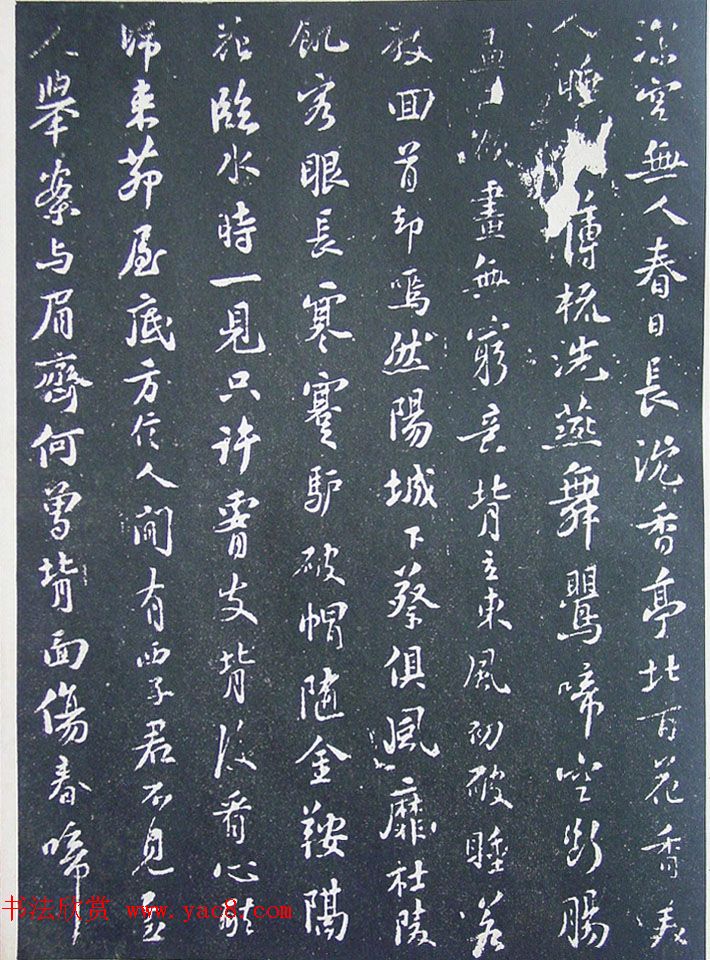 深宮無人春日長沉香亭北百花香美
人睡薄梳洗燕舞鶯啼空斷腸
欲畫無窮意背立東風初破睡若
教回首却嫣然陽城下蔡俱風靡杜陵
飢客眼長寒蹇驴破帽隨金鞍隔
花臨水時一見只許腰支背後看心醉
歸来茆屋底方信人間有西子君不見孟
光舉案与眉齊何曾背面傷春啼
书法欣赏 www.yac8.com